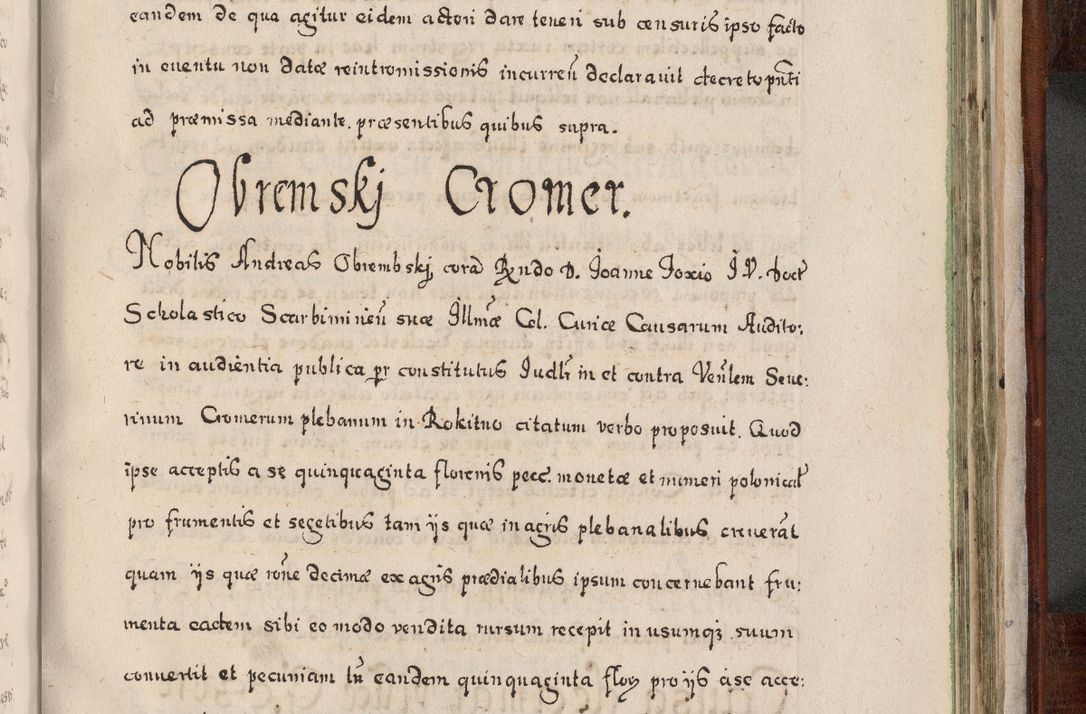 eandem de qua agitur eidem actori dare teneri sub censuris ipso facto
in euentu non datæ reintromissionis incurreñ declarauit decreto pñti
ad præmissa mediante. præsentibus quibus supra.
Obremskj Cromer.
Nobilis Andreas Obrembskj corã Rndo D. Joanne Foxio J. V. doct
Scholastico Scarbimirieñ suæ Illmæ Cel. Curiæ Causarum Audito:
re in audientia publica pr constitutus Judlr in et contra Venlem Seue:
rinum Cromerum plebanum in Rokitno citatum verbo proposuit. Quod
ipse acceptis a se quinquaginta florenis pecc. monetæ et numeri polonical
pro frumentis et segetibus tam ijs quæ in agris plebanalibus creuerãt
quam ijs quæ rõne decimæ ex agris prædialibus ipsum concernebant fru:
menta eadem sibi eo modo vendita rursum recepit in usumq; suum
conuertit et pecuniam tñ eandem quinquaginta flor pro ijs a se acce: